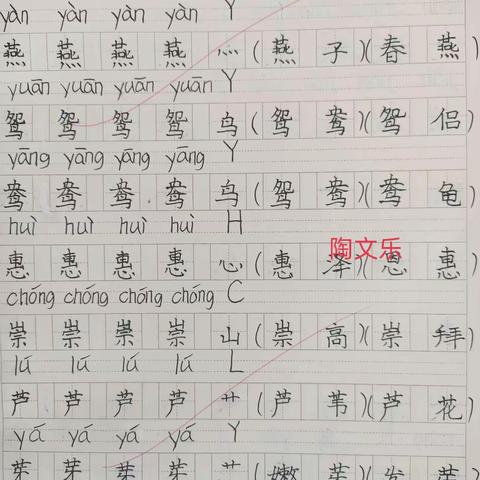 yàn yàn yàn yàn Y
燕 燕 燕 燕 灬 (燕 子)(春 燕)
yuān yuān yuān yuān Y
鸳 鸳 鸳 鸳 鸟 (鸳 鸯)(鸳 侣)
yāng yāng yāng yāng Y
鸯 鸯 鸯 鸯 鸟 (鸳 鸯)(鸯 龟)
huì huì huì huì H
惠 惠 惠 惠 心 (惠 泽)(恩 惠)
陶文乐
chóng chóng chóng chóng C
崇 崇 崇 崇 山 (崇 高)(崇 拜)
lú lú lú lú L
芦 芦 芦 芦 艹 (芦 苇)(芦 花)
yá yá yá yá Y
芽 芽 芽 芽 艹 (嫩 芽)(发 芽)